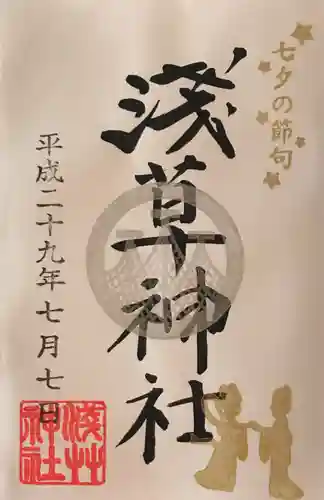 七夕の節句
浅草神社
平成二十九年七月七日
浅草神社